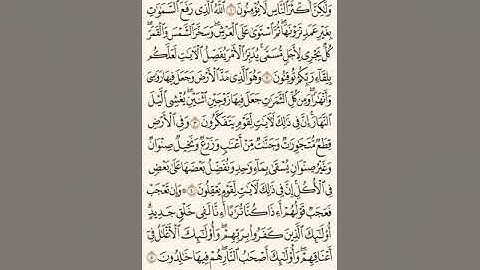 وَلَٰكِنَّ أَكْثَرَ ٱلنَّاسِ لَا يُؤْمِنُونَ ١ ٱللَّهُ ٱلَّذِى رَفَعَ ٱلسَّمَٰوَٰتِ
بِغَيْرِ عَمَدٍ تَرَوْنَهَا ۖ ثُمَّ ٱسْتَوَىٰ عَلَى ٱلْعَرْشِ ۖ وَسَخَّرَ ٱلشَّمْسَ وَٱلْقَمَرَ ۖ
كُلٌّ يَجْرِى لِأَجَلٍ مُّسَمًّى ۚ يُدَبِّرُ ٱلْأَمْرَ يُفَصِّلُ ٱلْءَايَٰتِ لَعَلَّكُم
بِلِقَآءِ رَبِّكُمْ تُوقِنُونَ ٢ وَهُوَ ٱلَّذِى مَدَّ ٱلْأَرْضَ وَجَعَلَ فِيهَا رَوَٰسِىَ
وَأَنْهَٰرًا ۖ وَمِن كُلِّ ٱلثَّمَرَٰتِ جَعَلَ فِيهَا زَوْجَيْنِ ٱثْنَيْنِ ۖ يُغْشِى ٱلَّيْلَ
ٱلنَّهَارَ ۚ إِنَّ فِى ذَٰلِكَ لَءَايَٰتٍ لِّقَوْمٍ يَتَفَكَّرُونَ ٣ وَفِى ٱلْأَرْضِ
قِطَعٌ مُّتَجَٰوِرَٰتٌ وَجَنَّٰتٌ مِّنْ أَعْنَٰبٍ وَزَرْعٌ وَنَخِيلٌ صِنْوَانٌ
وَغَيْرُ صِنْوَانٍ يُسْقَىٰ بِمَآءٍ وَٰحِدٍ وَنُفَضِّلُ بَعْضَهَا عَلَىٰ بَعْضٍ
فِى ٱلْأُكُلِ ۚ إِنَّ فِى ذَٰلِكَ لَءَايَٰتٍ لِّقَوْمٍ يَعْقِلُونَ ٤ ۞ وَإِن تَعْجَبْ
فَعَجَبٌ قَوْلُهُمْ أَءِذَا كُنَّا تُرَٰبًا أَءِنَّا لَفِى خَلْقٍ جَدِيدٍ ۗ
أُو۟لَٰٓئِكَ ٱلَّذِينَ كَفَرُوا۟ بِرَبِّهِمْ ۖ وَأُو۟لَٰٓئِكَ ٱلْأَغْلَٰلُ فِىٓ
أَعْنَاقِهِمْ ۖ وَأُو۟لَٰٓئِكَ أَصْحَٰبُ ٱلنَّارِ ۖ هُمْ فِيهَا خَٰلِدُونَ ٥